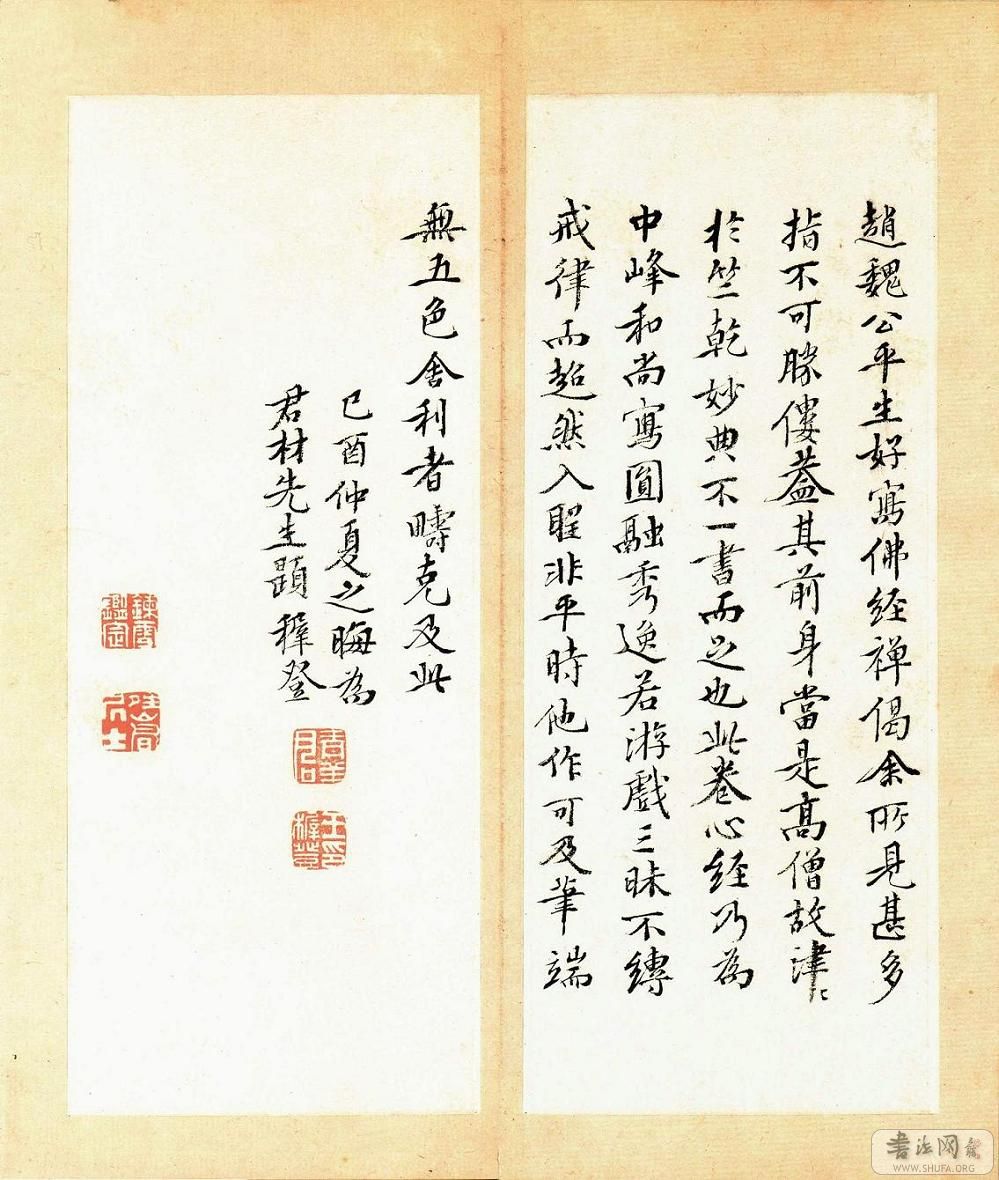 趙魏公平生好寫佛経禅偈余所見甚多
指不可勝僂葢其前身當是髙僧故津〻
扵竺乾妙典不一書而足也此卷心経乃為
中峰和尚寫圓融秀逸若游戲三昧不縛
戒律而超然入聖非平時他作可及筆端
無五色舍利者疇克及此
己酉仲夏之晦為
君材先生題穉登
王印
穉登
鑑定
居士
書法网
WWW.SHUFA.ORG